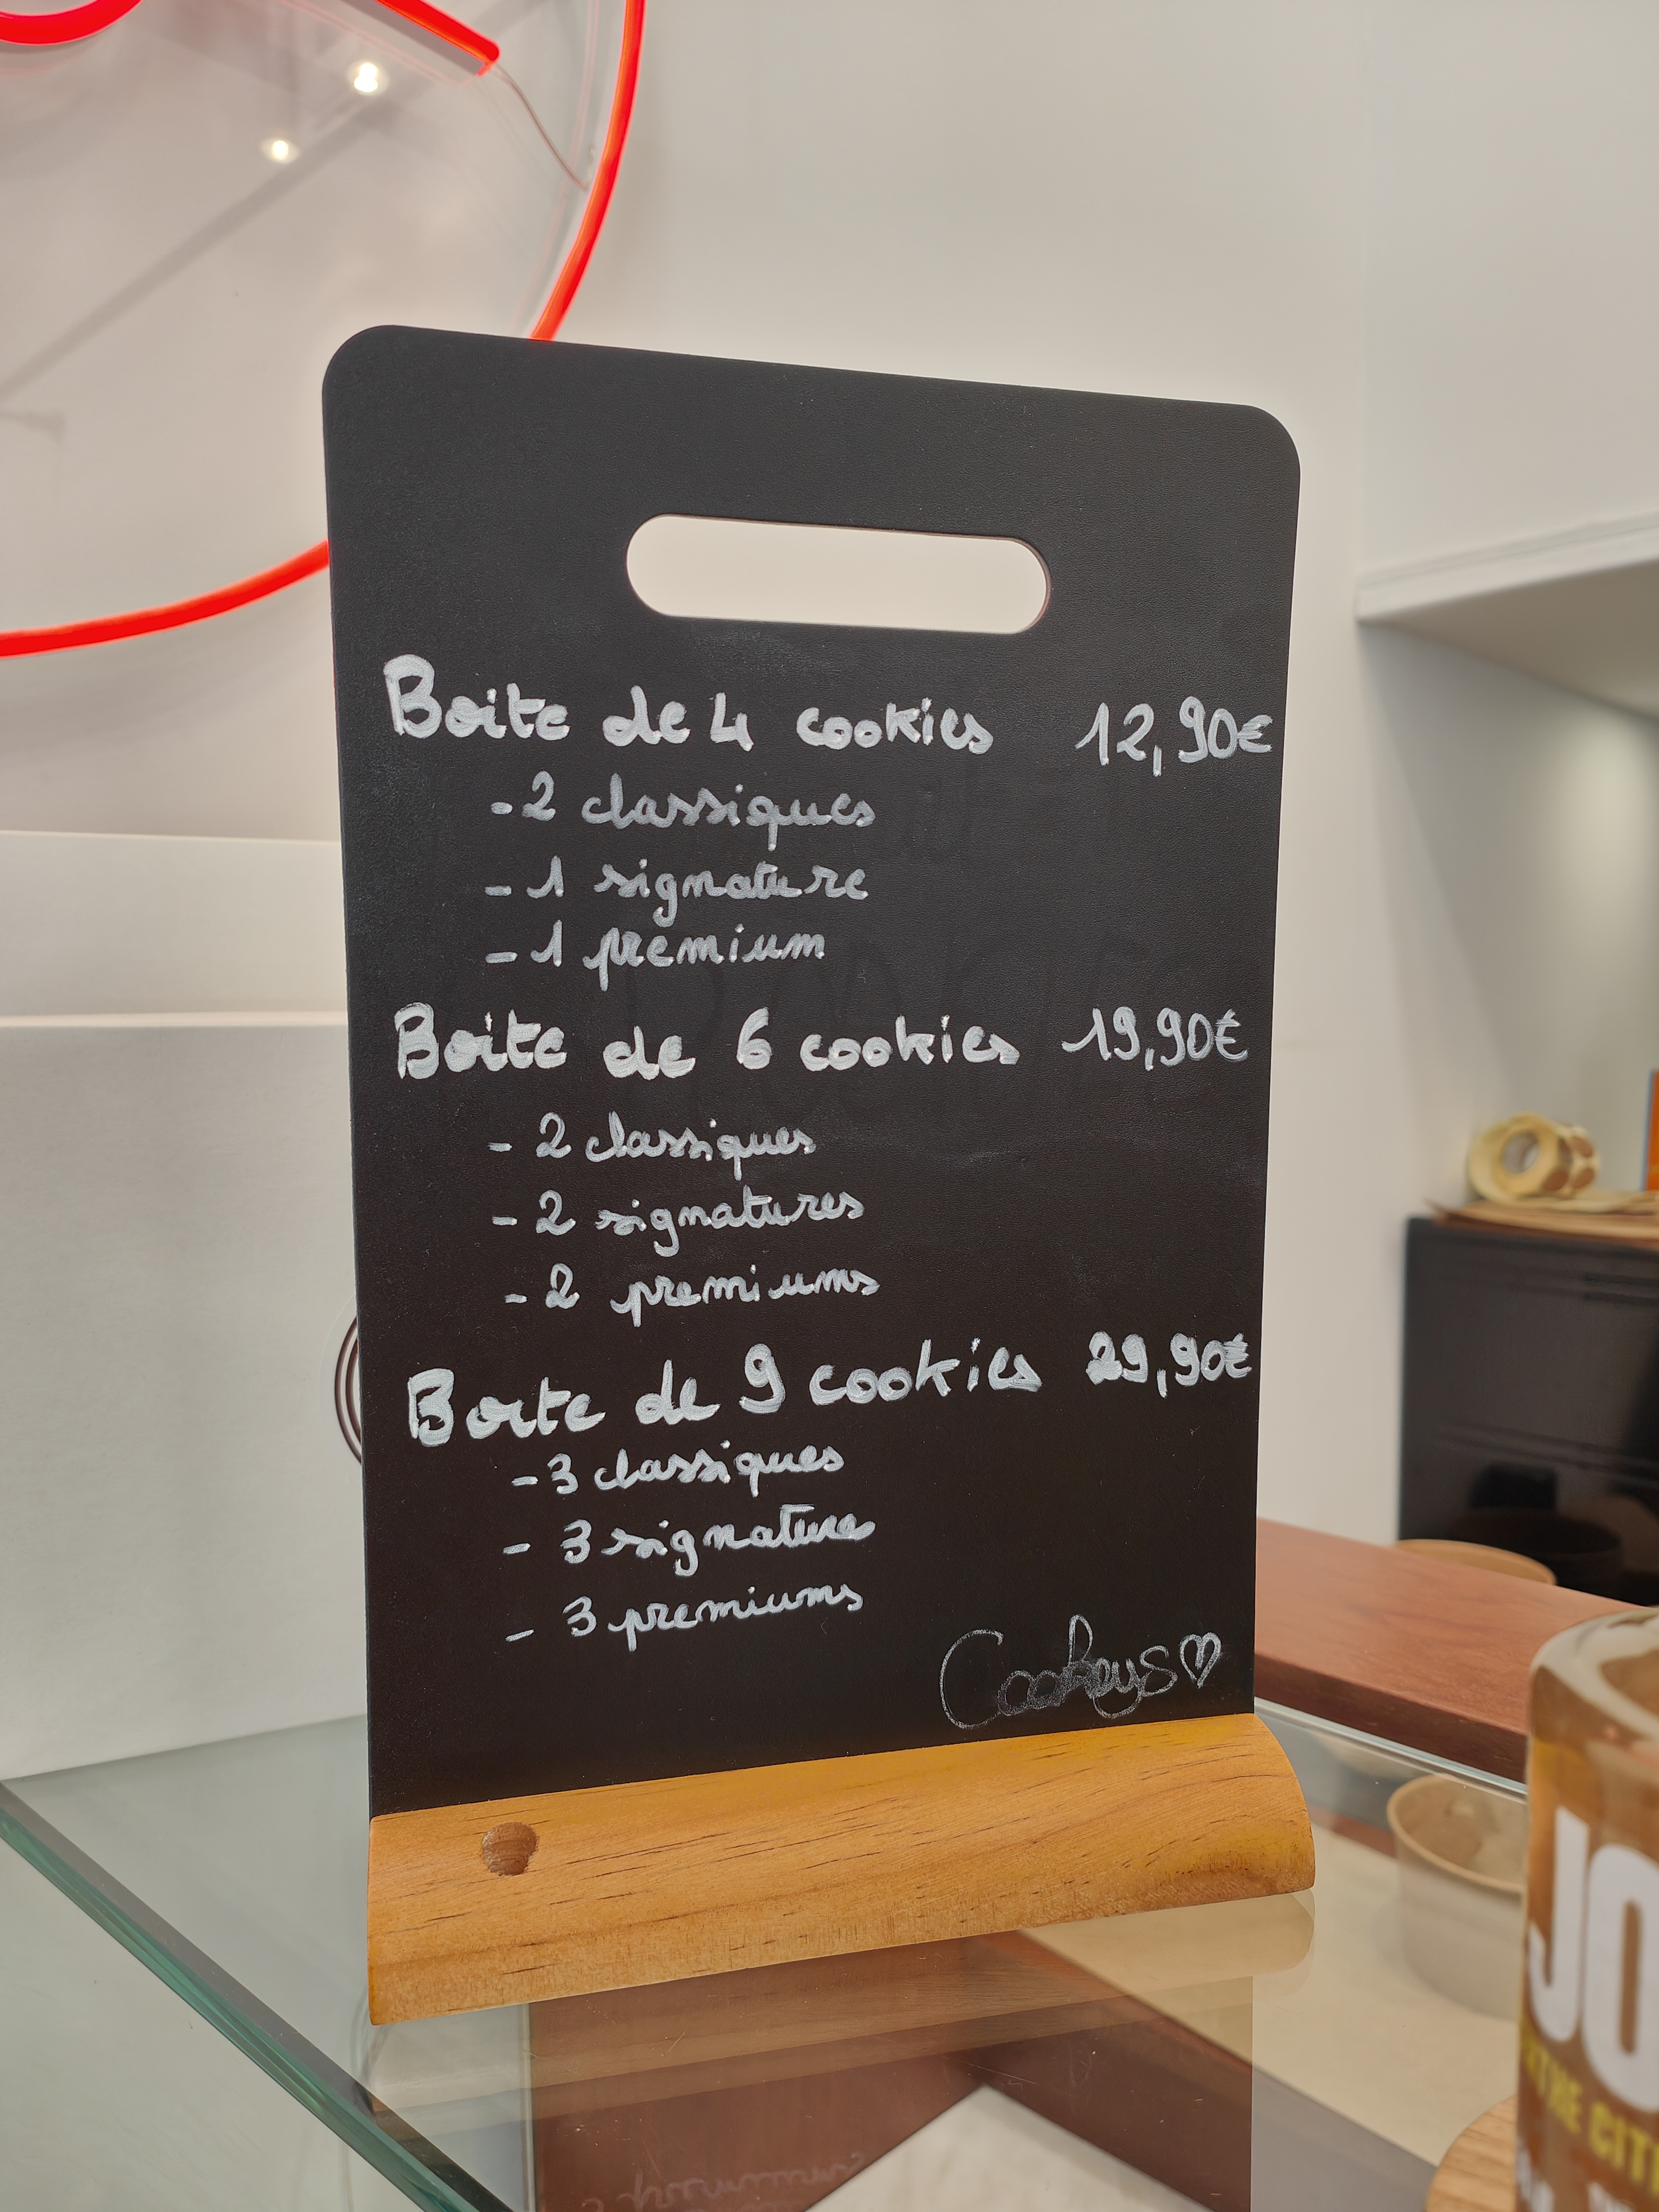 Boite de 4 cookies 12,90€
- 2 classiques
- 1 signature
- 1 premium
Boite de 6 cookies 19,90€
- 2 classiques
- 2 signatures
- 2 premiums
Boite de 9 cookies 29,90€
- 3 classiques
- 3 signatures
- 3 premiums
Cookeys♡
JO